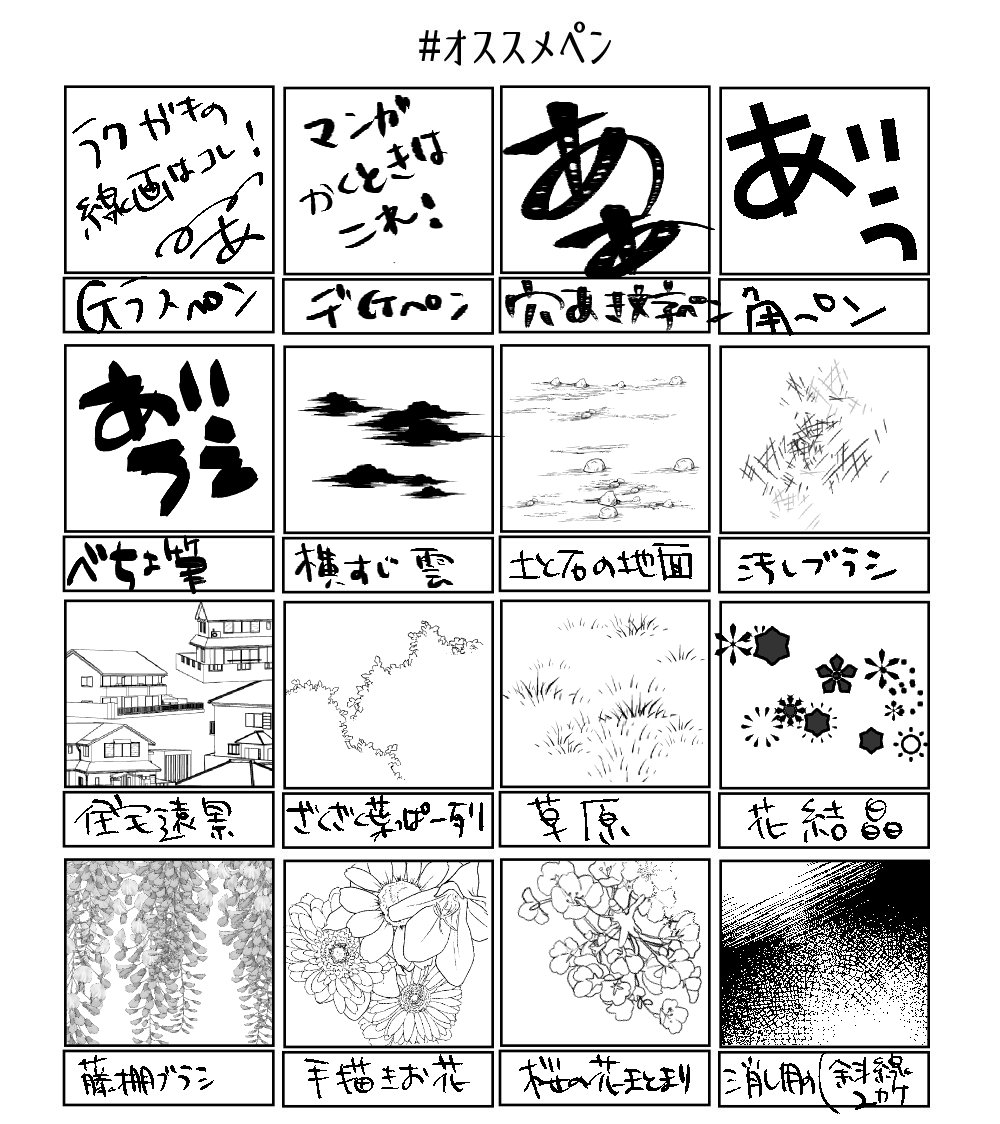 #オススメペン
ラクガキの
線画はコレ!
あ
マンガ
かくときは
これ!
あ
あ
あい
う
Gラスペン
デGペン
穴あき数字ペン
角ペン
あい
うえ
べちょ筆
横すじ雲
土と石の地面
汚しブラシ
住宅遠景
ざくざく葉っぱ一列
草原
花結晶
藤棚ブラシ
手描きお花
桜の花まとまり
消し用の(斜線
2カケ